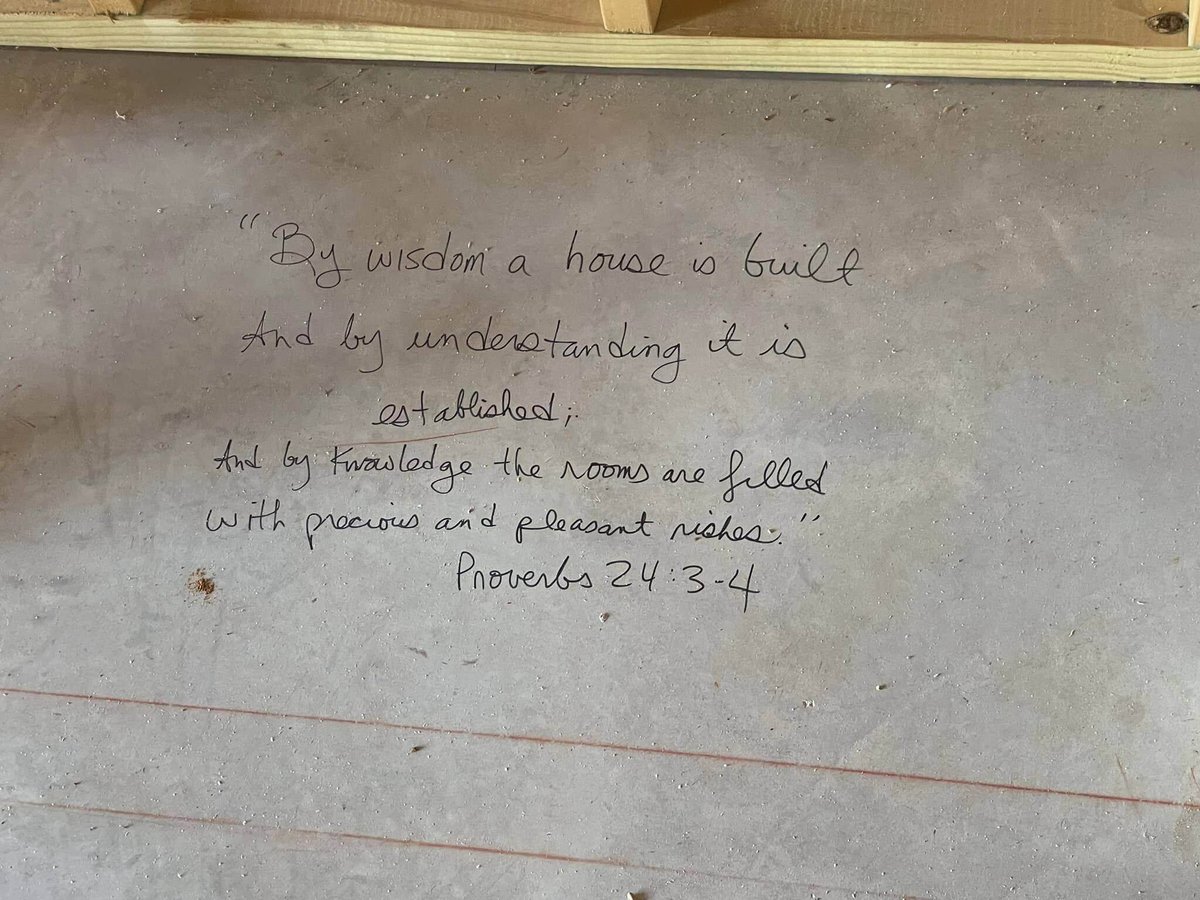 "By wisdom a house is built
And by understanding it is
established;
And by knowledge the rooms are filled
with precious and pleasant rishes."
Proverbs 24:3-4